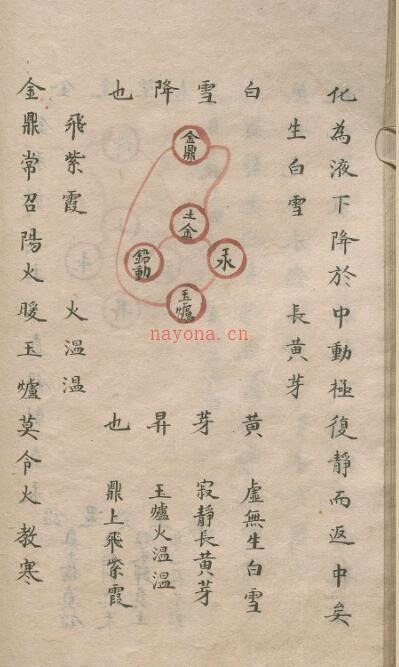 化為液下降於中動極復靜而返中矣
生白雪
長黃芽
白雪降也
黃芽昇也
虛無生白雪
寂靜長黃芽
玉爐火溫溫
鼎上飛紫霞
金鼎
土金
鉛動
汞
玉爐
飛紫霞
火溫溫
金鼎常召陽火暖玉爐莫令火教寒
nayona.cn